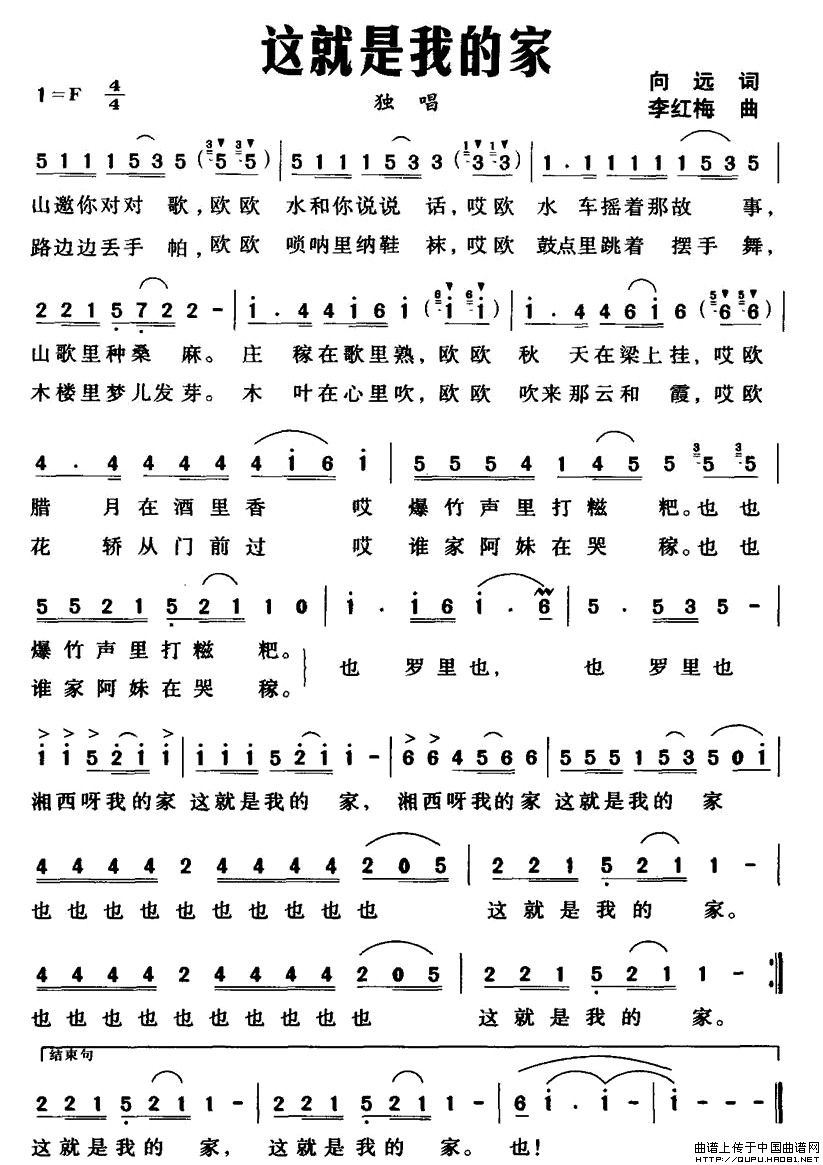 这就是我的家
1=F 4/4
独 唱
向 远 词
李红梅 曲
5 1 1 1 5 3 5 (5 5) | 5 1 1 1 5 3 3 (3 3) | 1 . 1 1 1 1 1 5 3 5 |
山邀你对对 歌，欧欧 水和你说说 话，哎欧 水 车摇着那故 事，
路边边丢手 帕，欧欧 唢呐里纳鞋 袜，哎欧 鼓点里跳着 摆手 舞，
2 2 1 5 7 2 2 - | i . 4 4 i 6 i (i i) | i . 4 4 6 i 6 (6 6) |
山歌里种桑 麻。庄 稼在歌里熟，欧欧 秋 天在梁上挂，哎欧
木楼里梦儿发芽。木 叶在心里吹，欧欧 吹来那云和 霞，哎欧
4 . 4 4 4 4 4 i 6 i | 5 5 5 4 1 4 5 5 5
腊 月在酒里香 哎 爆竹声里打糍 粑。也也
花 轿从门前过 哎 谁家阿妹在哭 稼。也也
5 5 2 1 5 2 1 1 0 | i . i 6 i . 6 | 5 . 5 3 5 - |
爆竹声里打糍 粑。
谁家阿妹在哭 稼。
也 罗里也， 也 罗里也
i i 5 2 i i | i i i 5 2 i i - | 6 6 4 5 6 6 | 5 5 5 1 5 3 5 0 i |
湘西呀我的家 这就是我的 家，湘西呀我的家 这就是我的 家
4 4 4 4 2 4 4 4 4 2 0 5 | 2 2 1 5 2 1 1 - |
也 也 也 也 也 也 也 也 也 也 这 就 是 我 的 家。
4 4 4 4 2 4 4 4 4 2 0 5 | 2 2 1 5 2 1 1 - :‖
也 也 也 也 也 也 也 也 也 也 这 就 是 我 的 家。
结束句
2 2 1 5 2 1 1 - | 2 2 1 5 2 1 1 - | 6 i . i - | i - - - ‖
这就是我的 家，这就是我的 家。也！
曲谱上传于中国曲谱网
HTTP://QUPU.HAO81.NET